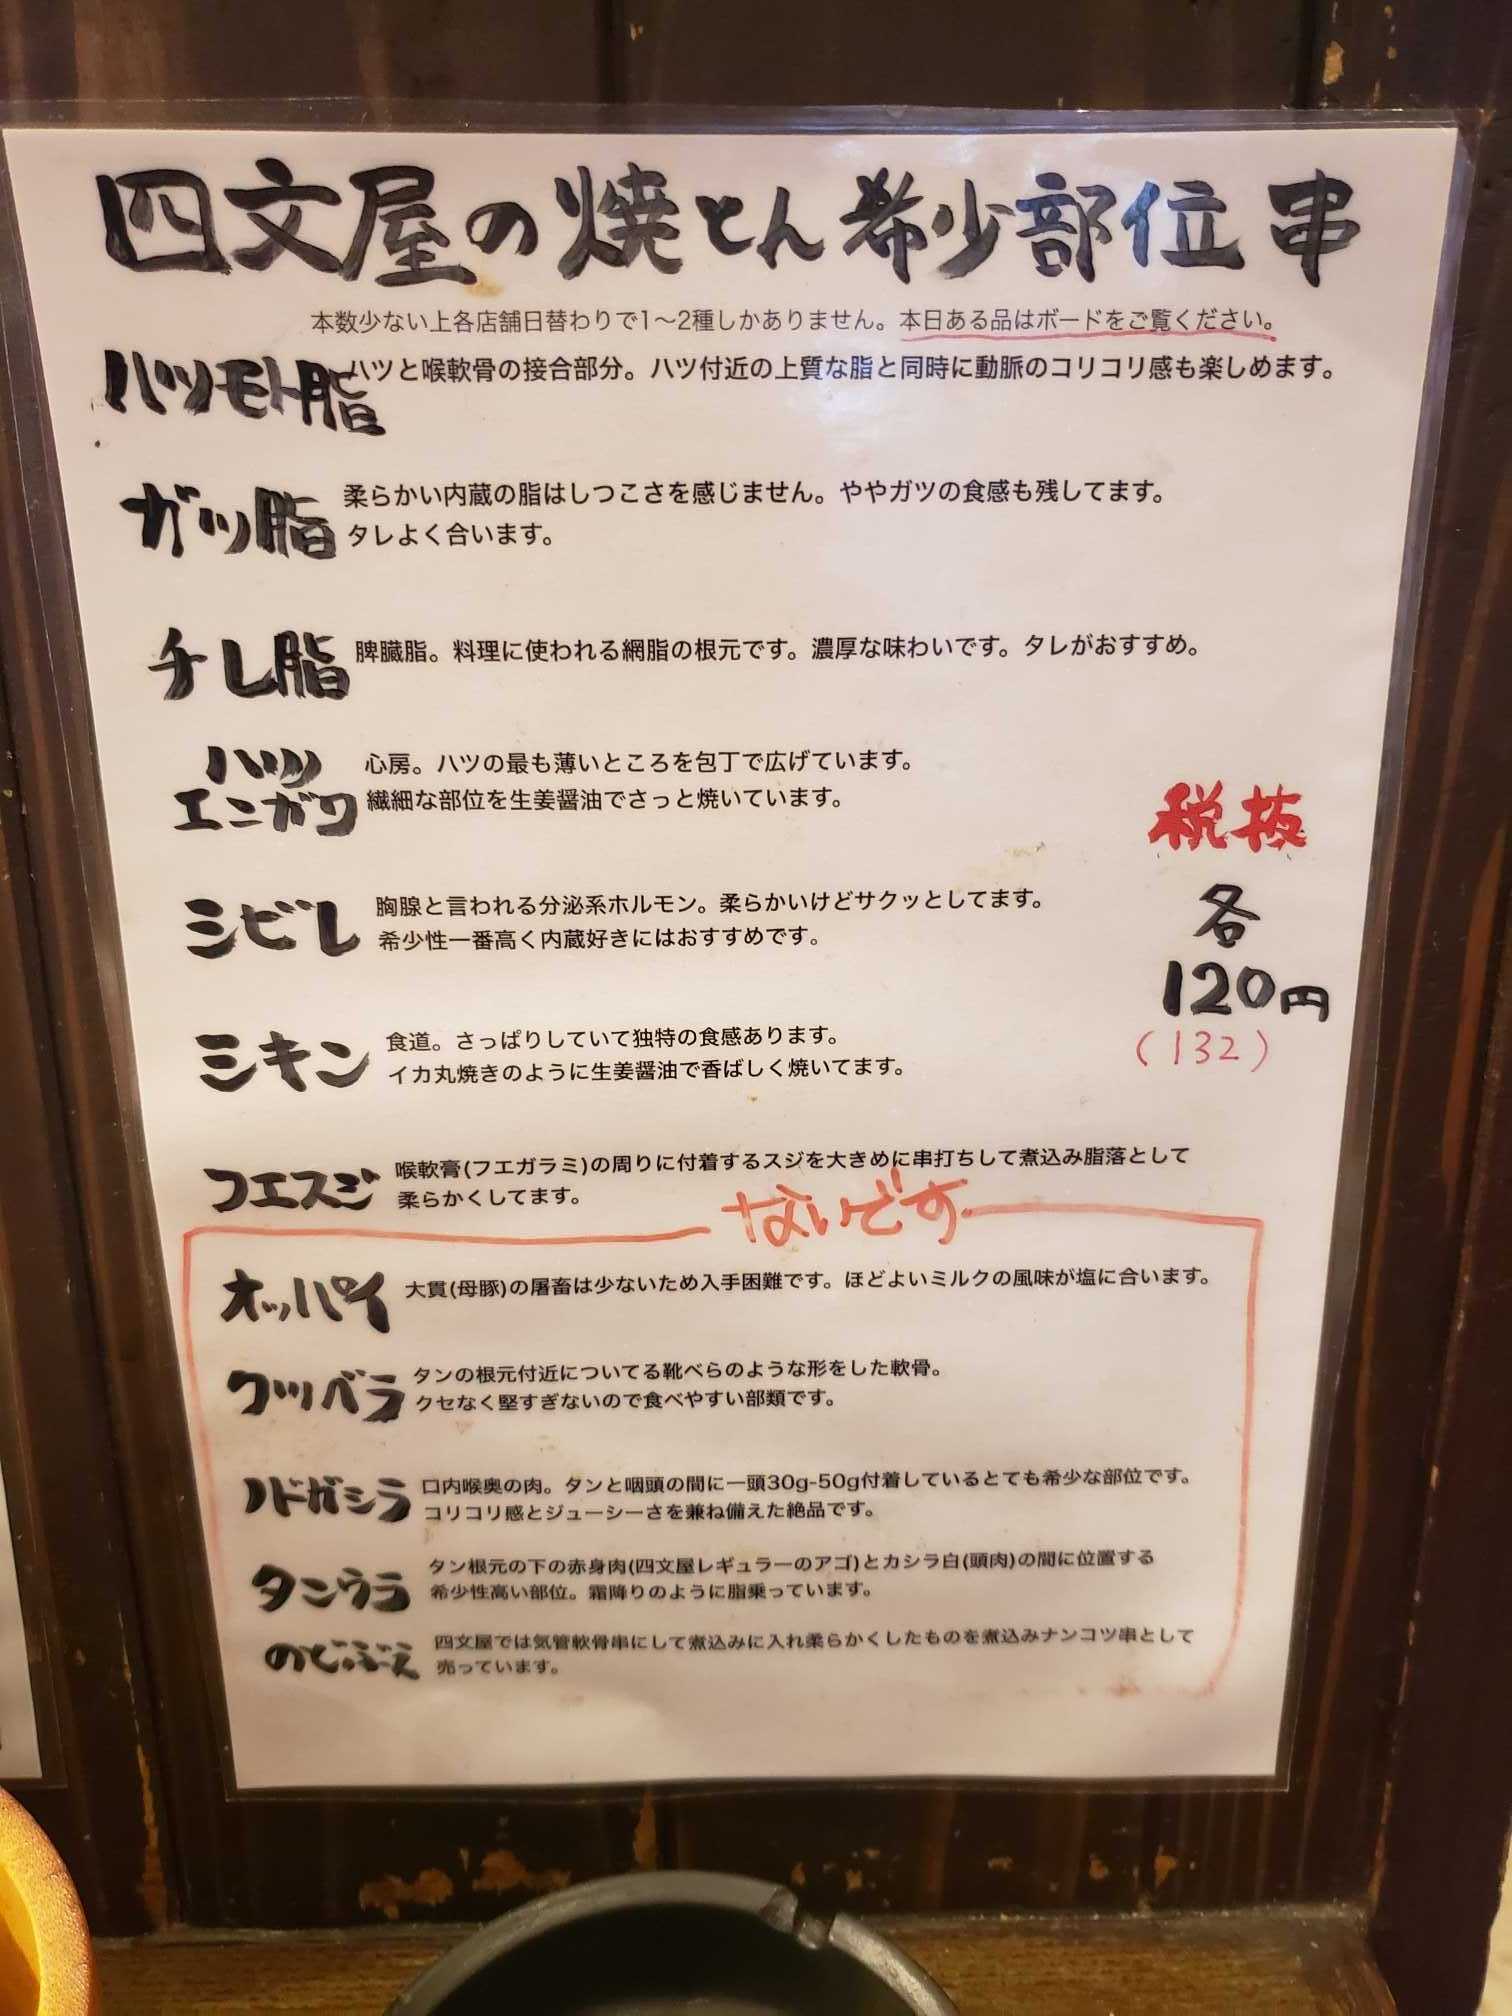 四文屋の焼とん希少部位串
本数少ない上各店舗日替わりで1〜2種しかありません。本日ある品はボードをご覧ください。
ハツモト脂
ハツと喉軟骨の接合部分。ハツ付近の上質な脂と同時に動脈のコリコリ感も楽しめます。
ガツ脂
柔らかい内蔵の脂はしつこさを感じません。ややガツの食感も残してます。
タレよく合います。
チレ脂
脾臓脂。料理に使われる網脂の根元です。濃厚な味わいです。タレがおすすめ。
ハツ
エンガワ
心房。ハツの最も薄いところを包丁で広げています。
繊細な部位を生姜醤油でさっと焼いています。
シビレ
胸腺と言われる分泌系ホルモン。柔らかいけどサクッとしてます。
希少性一番高く内蔵好きにはおすすめです。
シキン
食道。さっぱりしていて独特の食感あります。
イカ丸焼きのように生姜醤油で香ばしく焼いてます。
税抜
各
120円
(132)
フエスジ
喉軟膏(フエガラミ)の周りに付着するスジを大きめに串打ちして煮込み脂落として
柔らかくしてます。
ないです
オッパイ
大貫(母豚)の屠畜は少ないため入手困難です。ほどよいミルクの風味が塩に合います。
クツベラ
タンの根元付近についてる靴べらのような形をした軟骨。
クセなく堅すぎないので食べやすい部類です。
ノドガシラ
口内喉奥の肉。タンと咽頭の間に一頭30g-50g付着しているとても希少な部位です。
コリコリ感とジューシーさを兼ね備えた絶品です。
タンウラ
タン根元の下の赤身肉(四文屋レギュラーのアゴ)とカシラ白(頭肉)の間に位置する
希少性高い部位。霜降りのように脂乗っています。
のどぶえ
四文屋では気管軟骨串にして煮込みに入れ柔らかくしたものを煮込みナンコツ串として
売っています。